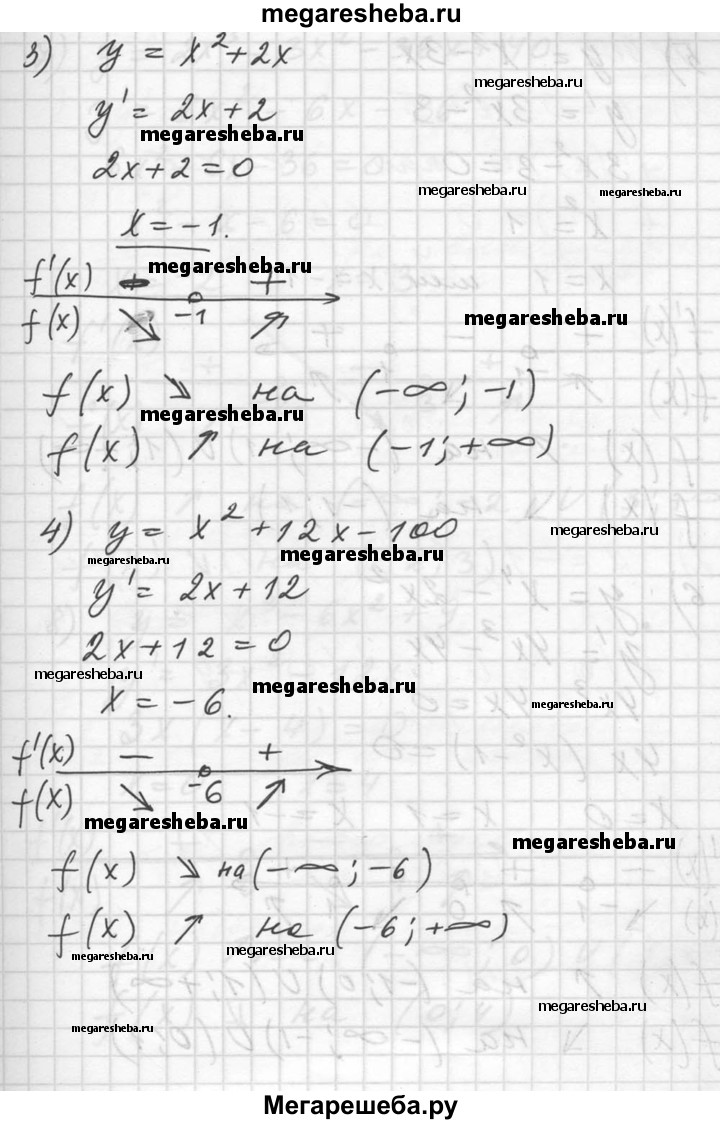 megaresheba.ru
3) y = x² + 2x
megaresheba.ru
y' = 2x + 2
megaresheba.ru
2x + 2 = 0
megaresheba.ru megaresheba.ru
x = -1.
megaresheba.ru
f'(x) +
f(x) ↘ -1 ↗
megaresheba.ru
f(x) ↘ на (-∞; -1)
megaresheba.ru
f(x) ↗ на (-1; +∞)
4) y = x² + 12x - 100
megaresheba.ru
megaresheba.ru megaresheba.ru
y' = 2x + 12
2x + 12 = 0
megaresheba.ru megaresheba.ru
x = -6.
megaresheba.ru
f'(x) — +
f(x) ↘ -6 ↗
megaresheba.ru
megaresheba.ru
f(x) ↘ на (-∞; -6)
f(x) ↗ на (-6; +∞)
megaresheba.ru megaresheba.ru
megaresheba.ru
megaresheba.ru
Мегарешеба.ру